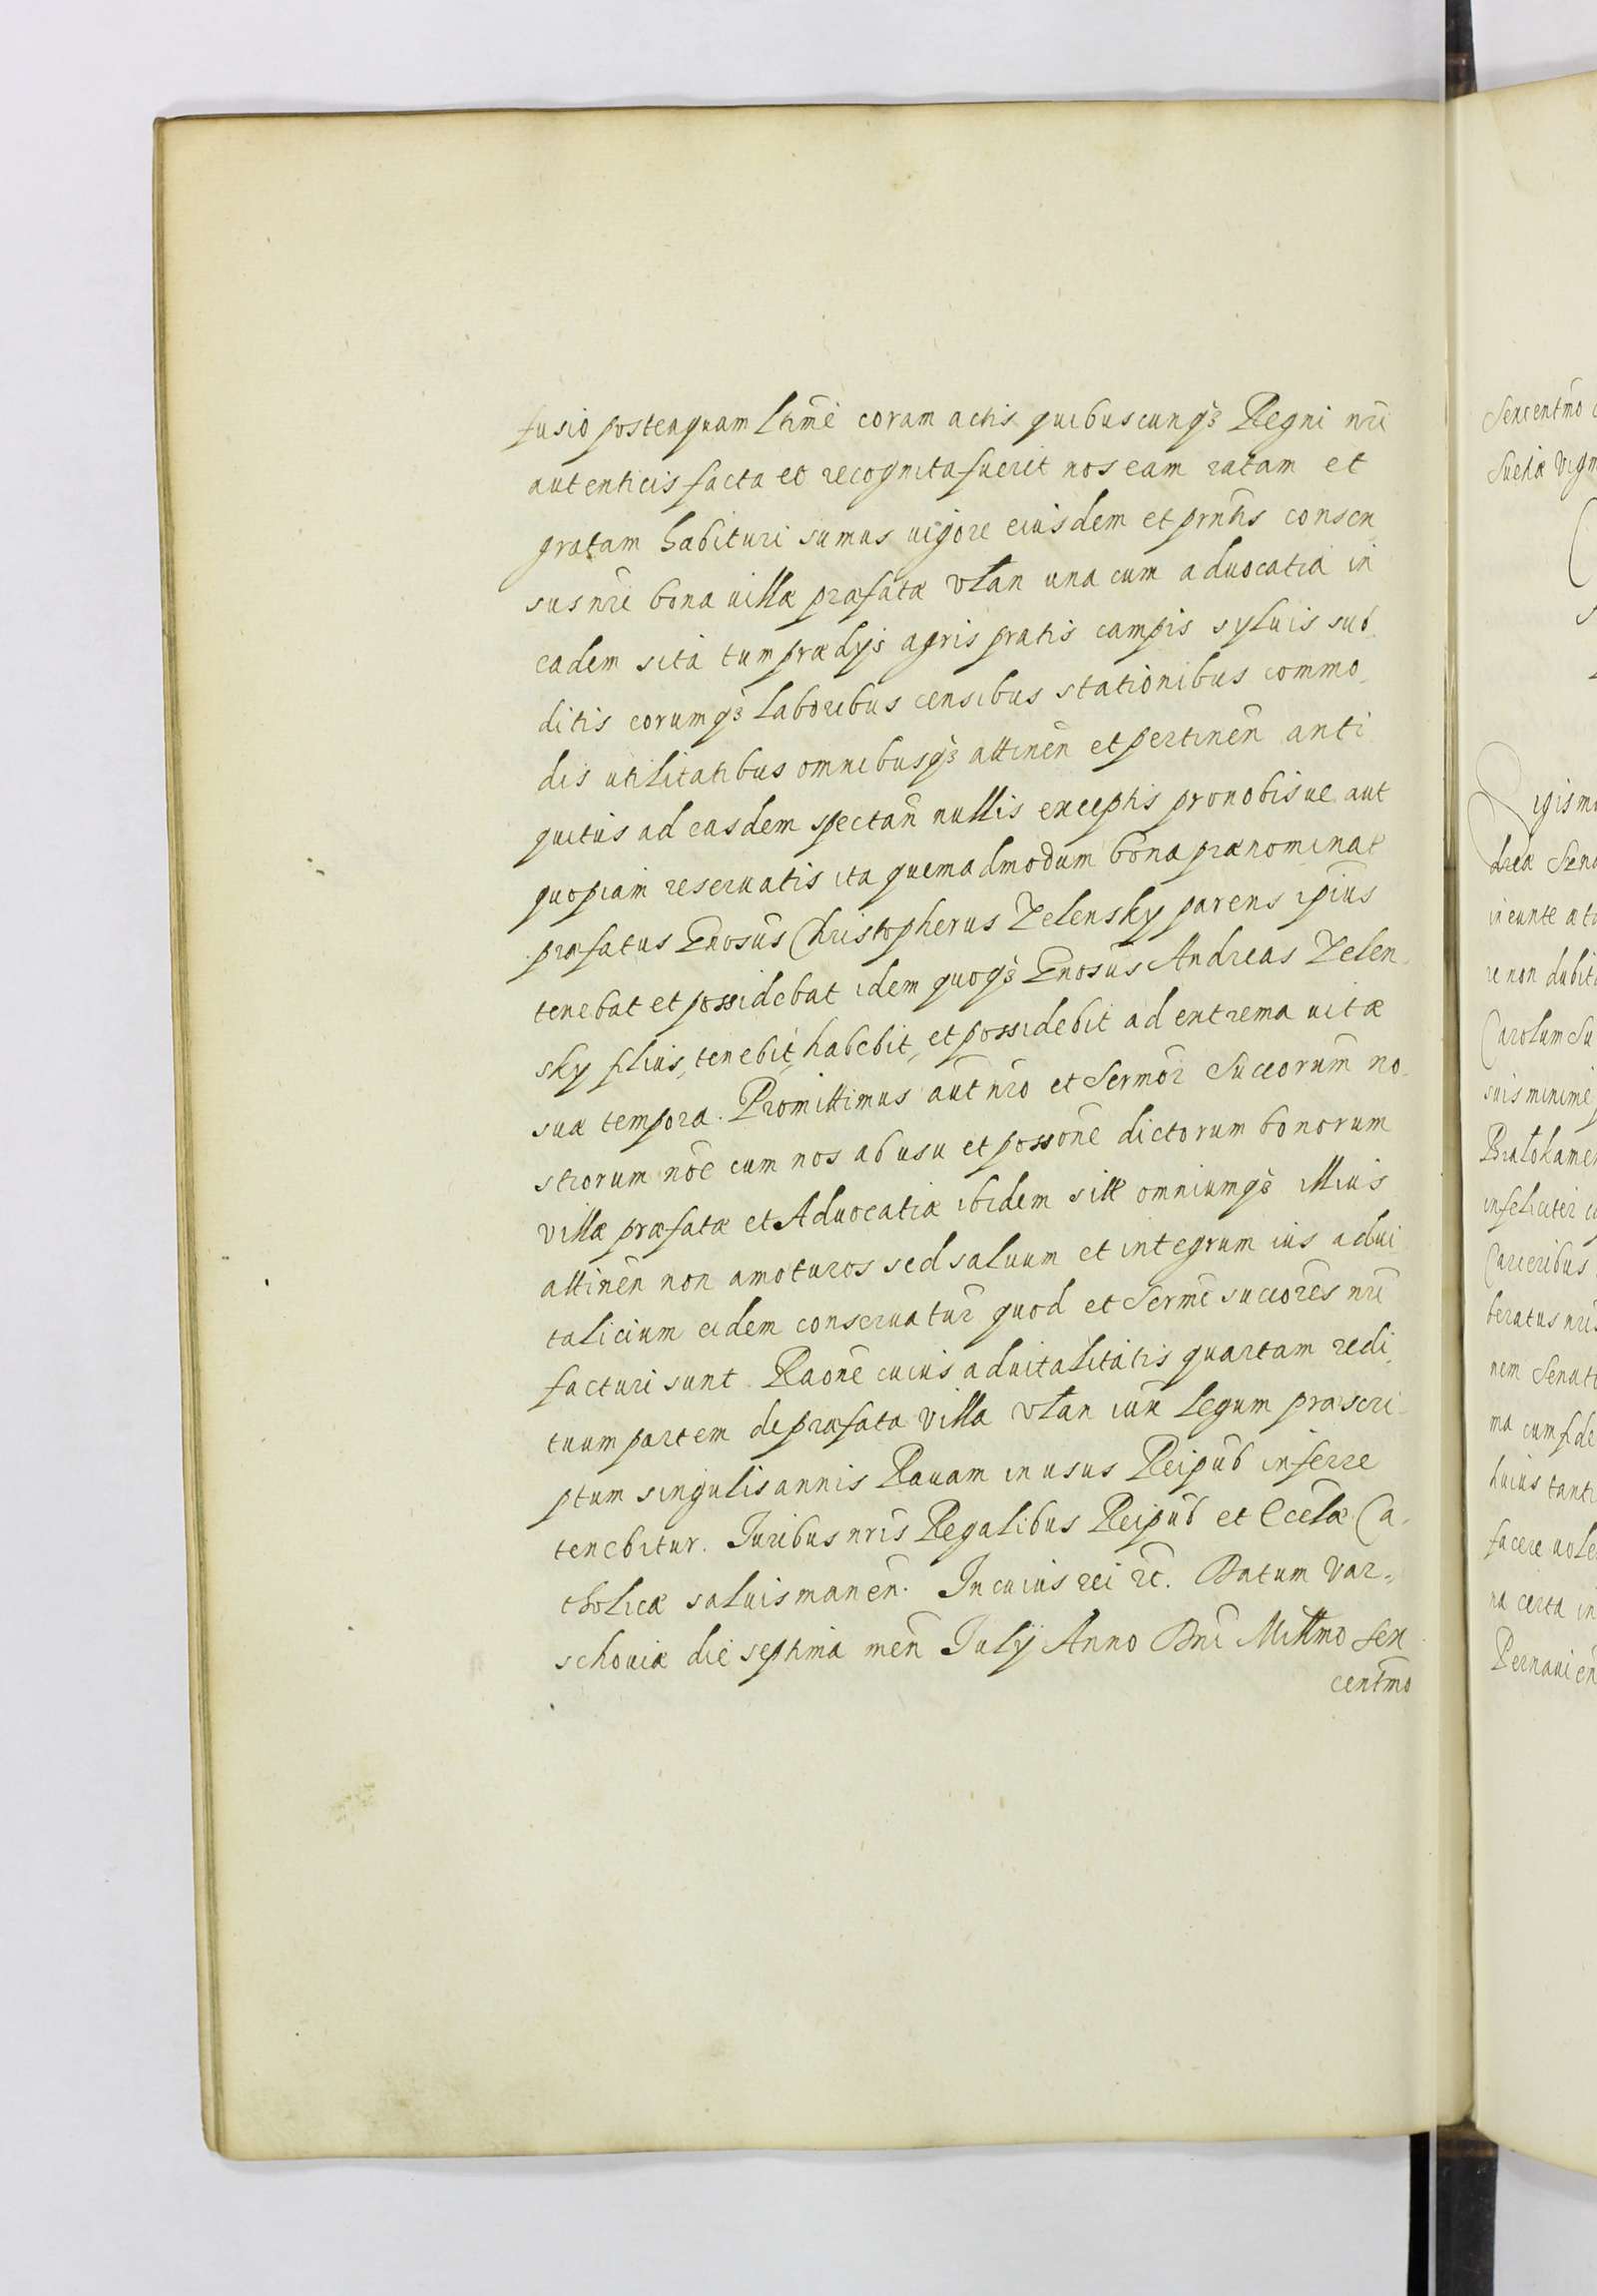 fusio posteaquam lt̃imẽ coram actis quibuscunqꝫ Regni nr̃i
autenticis facta et recognita fuerit nos eam ratam et
gratam habituri sumus uigore eiusdem et pñtis consen
sus nr̃i bona uillæ præfatæ Vłan una cum aduocatia in
eadem sita tum prædijs agris pratis campis syluis sub
ditis eorumqꝫ laboribus censibus stationibus commo
dis utilitatibus omnibusqꝫ attineñ et pertineñ anti
quitus ad easdem spectañ nullis exceptis pro nobis ue aut
quopiam reseruatis ita quemadmodum bona prænominat
præfatus Gñosus Christopherus Zelensky parens ip̃ius
tenebat et possidebat idem quoqꝫ Gñosus Andreas Zelen
sky filius, tenebit, habebit, et possidebit ad extrema uitæ
suæ tempora. Promittimus aut̃ nr̃o et Sermor̃ Succorum̃ no
strorum nõe eum nos ab usu et possõne dictorum bonorum
Villæ præfatæ et Aduocatiæ ibidem sitæ omniumqꝫ illius
attineñ non amoturos sed saluum et integrum ius adui
talicium eidem conseruatur̃ quod et Sermĩ succorẽs nr̃i
facturi sunt. Raõne cuius aduitalitatis quartam redi
tuum partem de præfata Villa Vłan iux̃ legum præscri
ptum singulis annis Rauam in usus Reipub̃ inferre
tenebitur. Iuribus nr̃is Regalibus Reipub̃ et Eccl̃æ Ca
tholicæ saluis maneñ. In cuius rei ꝛc̃. Datum Var
schouiæ die septima meñ July Anno Dñi Millm̃o Sex
centm̃o
Sexcentm̃o
Sueciæ
igism
ineunte
re non
Carolum Su
suis minime
infeliciter
Carceribus
beratus nr̃i
nem Senat
ma cum fide
huius tant
facere uole
na certa in
Pernaui